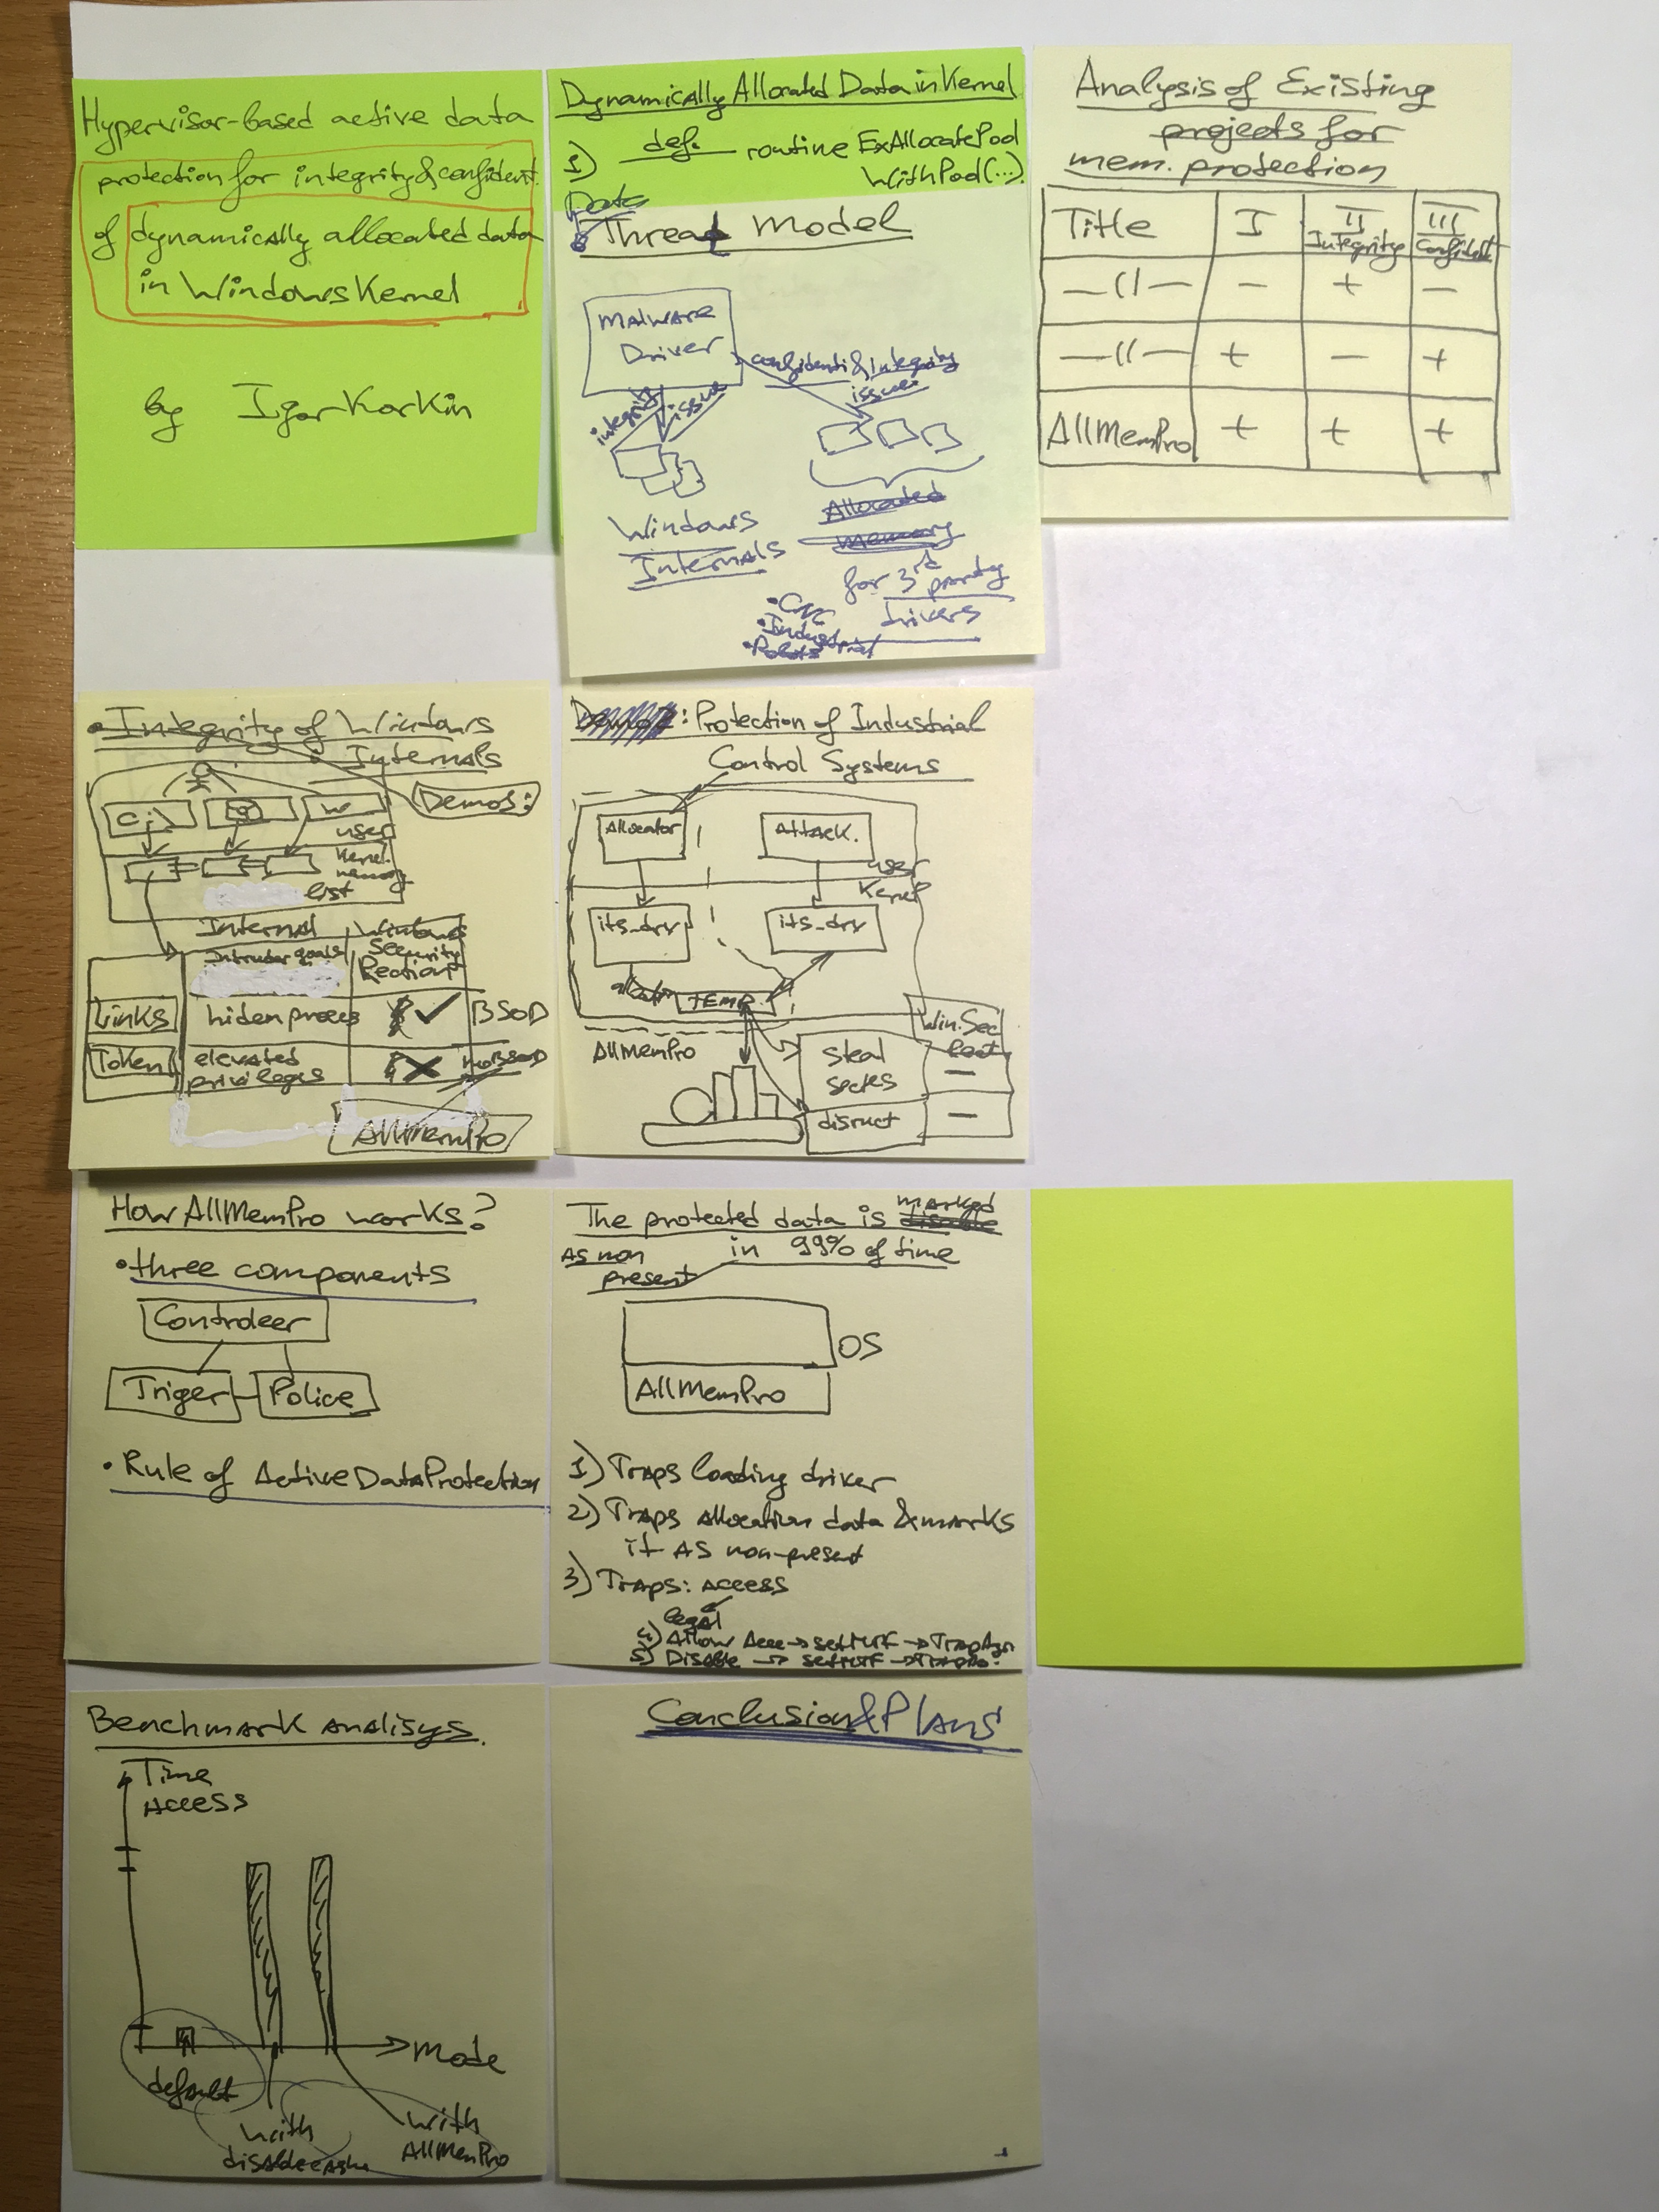 Hypervisor-based active data
protection for integrity & confident.
of dynamically allocated data
in Windows Kernel
by Igor Korkin
Dynamically Allocated Data in Kernel
1) def. routine ExAllocatePool
WithPool(...)
Data
Threat Model
Malware
Driver
confidenti & Integrity
issues
integrity
issue
Windows
Internals
Allocated
memory
for 3rd party
drivers
• CNC
• Industrial
• Robots
Analysis of Existing
projects for
mem. protection
Title I II III
Integrity Confident
—((— - + -
—((— + - +
AllMemPro + + +
• Integrity of Windows
Internals
Demos:
C:\ W
user
Kernel
memory
list
Internal Windows
Intruder goals Security
Reaction
Links hiden process ✓ BSOD
Token elevated
privileges ✗ no BSOD
AllMemPro
Demo 2: Protection of Industrial
Control Systems
Allocator Attack.
user
Kernel
its_drv its_drv
TEMP
AllMemPro
Win.Sec
steal —
disruct —
How AllMemPro works?
• three components
Controleer
Triger Police
• Rule of Active Data Protection
The protected data is disable marked
as non present in 99% of time
OS
AllMemPro
1) Traps loading driver
2) Traps allocation data & marks
it as non-present
3) Traps: access
legal
4) Allow → set MTF →
5) Disable → set MTF →
Benchmark analisys.
Time
Access
Mode
default
with
disable cashe
with
AllMenPro
Conclusion & Plans